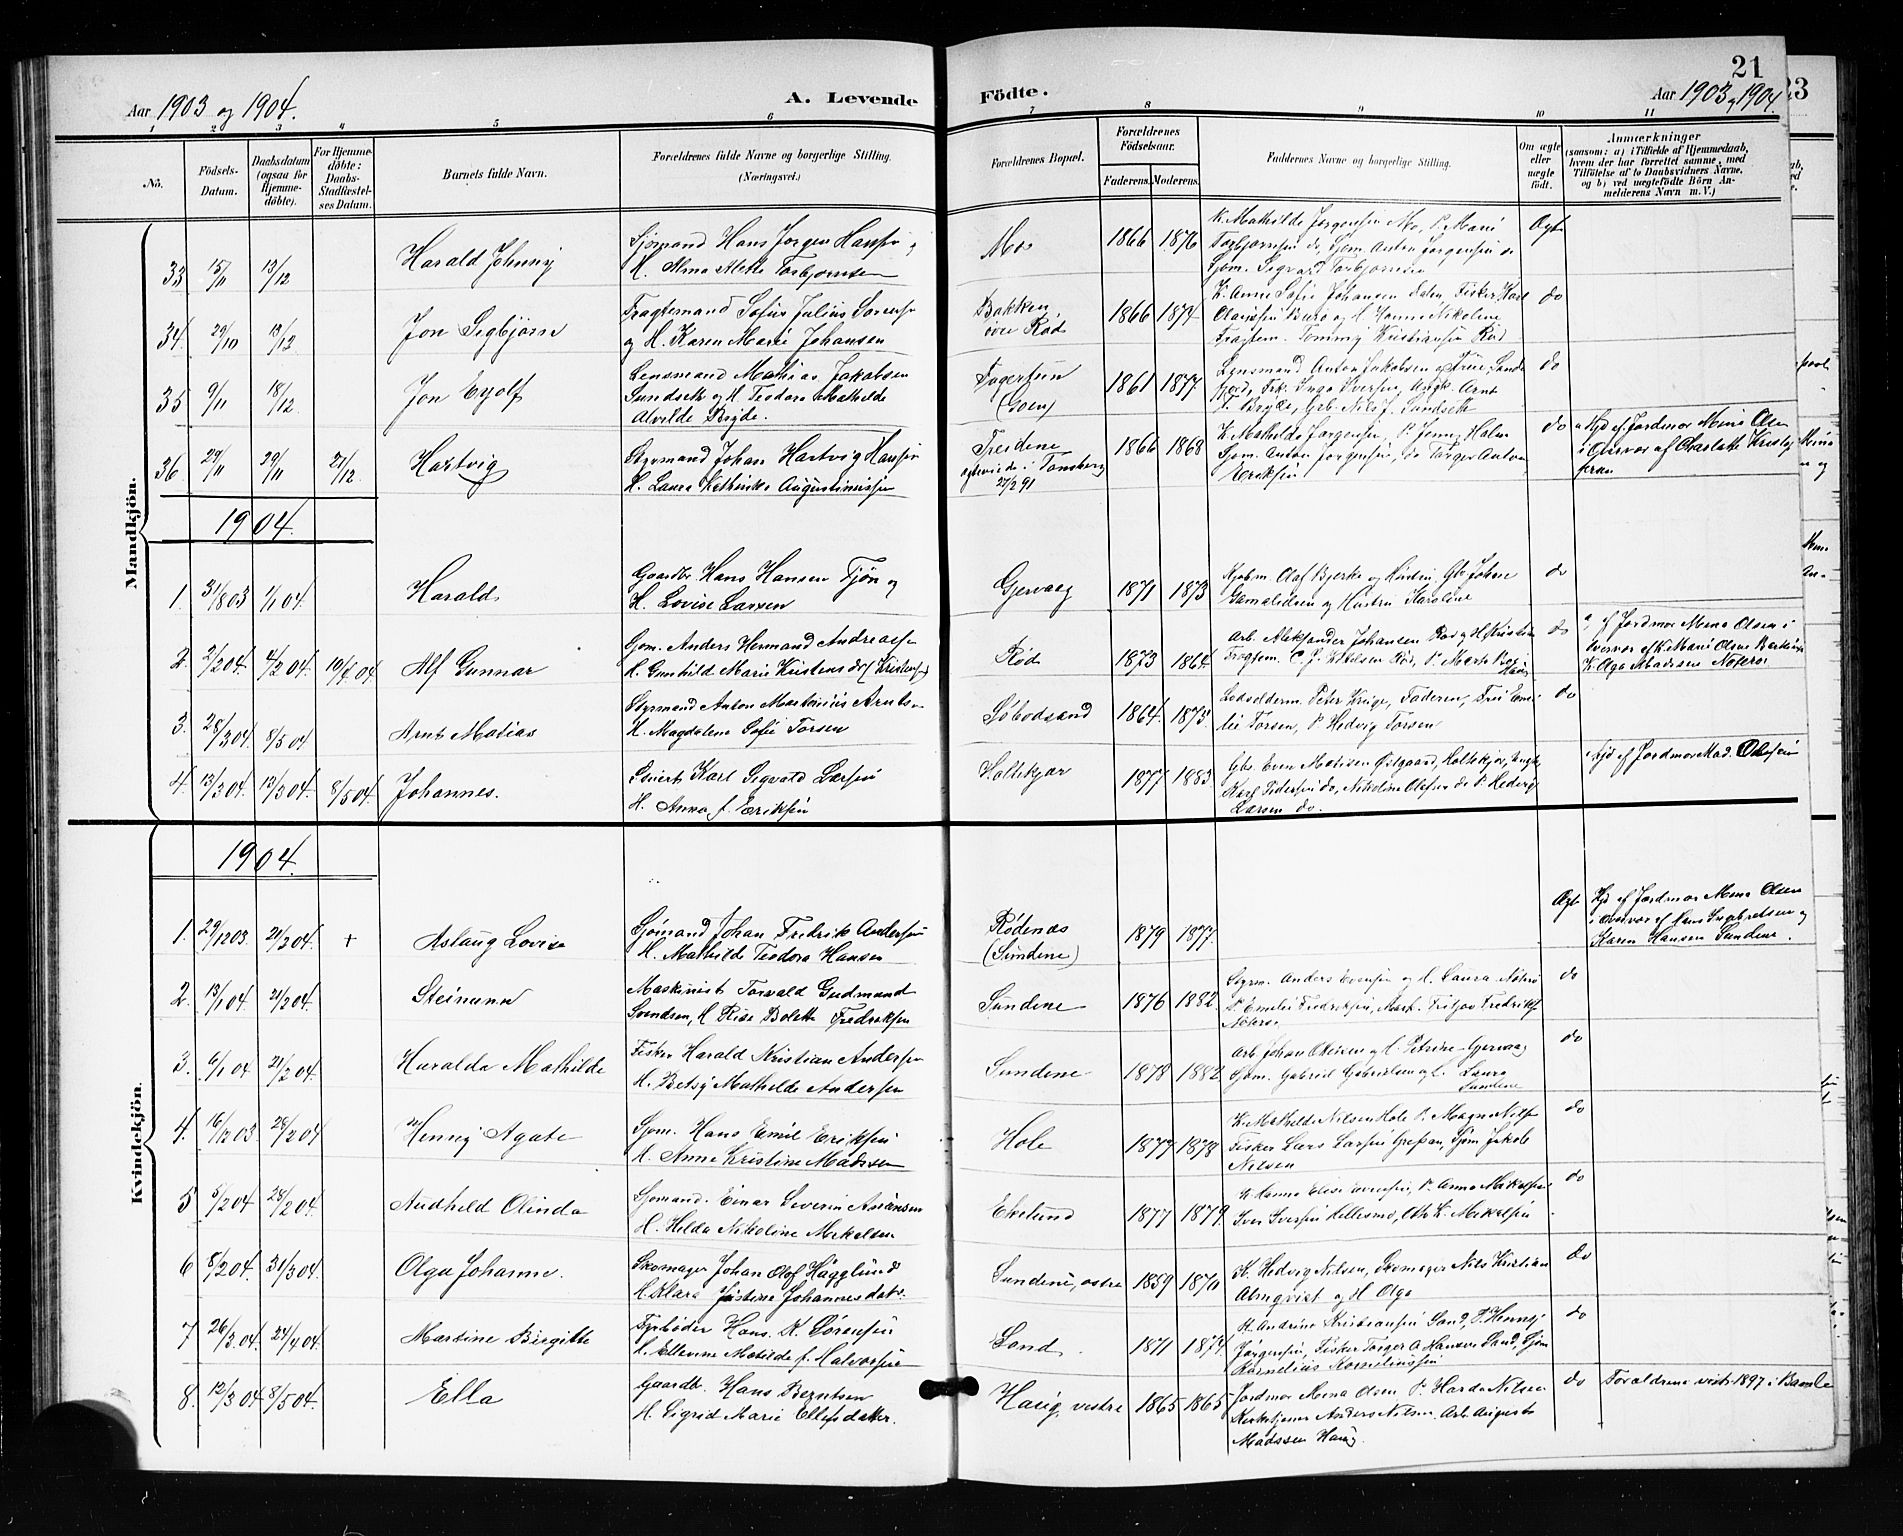 21
23
Aar 1903 og 1904.
A. Levende Födte.
Aar 1903 og 1904.
1 2 3 4 5 6 7 8 9 10 11
No.
Födsels-Datum.
Daabsdatum (ogsaa for Hjemme-döbte).
For Hjemme-döbte: Daabs-Stadfæstel-ses Datum.
Barnets fulde Navn.
Forældrenes fulde Navne og borgerlige Stilling. (Næringsvei.)
Forældrenes Bopæl.
Forældrenes Födselsaar.
Faderens. Moderens.
Faddernes Navne og borgerlige Stilling.
Om ægte eller uægte födt.
Anmærkninger
(saasom: a) i Tilfælde af Hjemmedaab, hvem der har forrettet samme, med Tilföielse af to Daabsvidners Navne, og b) ved uægtefödte Börn An-melderens Navn m. V.)
Mandkjön.
33 15/11 13/12 Harald Johnny
Sjömand Hans Jörgen Hansen
H. Alma Alette Torbjornsen
Mo 1866 1876
K. Mathilde Jørgensen Mo, P. Marie
Torbjornsen do, Sjom. Anton Jørgensen do
Sjom. Sigvard Torbjornsen
Ægte
34. 29/10 13/12 Jon Sigbjörn
Fragtemand Sofus Julius Sorensen
og H. Karen Marie Johansen
Bakken
övre Rød 1866 1874
K. Anne Sofie Johansen Fisker Karl
Olausen og H. Hanna Nikoline
Fragtem. Tommy Kristiansen Rød
do
35 9/11 18/12 Jon Eyolf
Lensmand Mathias Jakobsen
Sundseth og H. Teodora Mathilde
Alvilde Bryde.
Fagertun
(Goen) 1861 1877
Lensmand Anton Jakobsen
Inga Iversen, Ungk. Arnt
F. Bryde, Grb. Nils J. Sundseth
do
36 29/11 29/11 27/12 Hartvig
Styrmand Johan Hartvig Hansen
H. Laura Kathinka Augustinussen
Treidene
ægteviede i Tønsberg
27/2 91
1866 1868
K. Mathilde Jørgensen, P. Jenny Holm
Sjom. Anton Jørgensen, do Torger Anton
Eriksen
do
Hjd af Jordmor Mina Olsen
i Overvær af Charlotte Kristof
fersen
1904.
1. 31/8 03 1/1 04 Harald
Gaardbr. Hans Hansen Tjön og
H. Lovise Larsen
Gjervaag 1871 1873
Kjobm. Olaf Bjerke og Hustru, Gbr Johan
Gamalielsen og Hustru Karoline
do
2. 2/2 04. 4/2 04 10/4 04 Alf Gunnar
Sjom. Anders Hermand Andreasse
H. Gunhild Marie Kristensdtr (Kristensen)
Rød 1873 1864
Arb. Aleksander Johansen Rød og H. Kristine
Fragtem. C. J. Nilsen Rød, P. Marta
do
af Jordmor Mina Olsen i
Overvær af K. Marie Olsen
K. Olga Madsen Nøterø
3. 28/3 04. 8/5 04. Arnt Matias
Styrmand Anton Martinius Arntsen
H. Magdalene Sofie Torsen
Søbodsand 1864. 1873.
Lodsolderm. Peter Krüge, Faderen, Frue Emi
lie Torsen, P. Hedvig Torsen
do
4. 13/3 04. 13/3 04 8/5 04. Johannes.
Karl Sigvald Larsen
H. Anna f. Eriksen
Holtekjær 1877 1883
Gbr. Even Madsen Østgaard, Holtekjær, Ungk.
Karl Pedersen do, Nikoline Olsen do P. Hedvig
Larsen do.
Hjd af Jordmor Mad. Olsen
Kvindekjön.
1904.
1. 29/12 03. 21/2 04. + Aslaug Lovise
Sjömand Johan Fredrik Andersen
H. Mathilde Teodora Hansen
Rødenæs
(Sundene) 1879 1877.
Ægte
Hjd af Jordmor Mina Olsen
i Overvær af Hans Ingebretsen og
Karen Hansen Sundene.
2. 13/1 04. 21/2 04. Steinunn
Maskinist Torvald Gudmand
Svendsen, H. Elise Bolette Fredriksen
Sundene 1876 1882.
Styrm. Anders Evensen og H. Laura Nøterø
P. Emelie Fredriksen, Mask. Fritjov Fredriksen
Nøterø
do
3. 6/1 04 21/2 04. Haralda Mathilde
Fisker Harald Kristian Andersen
H. Betsy Mathilde Andersen
Sundene 1878 1882
Arb. Johan Ottesen og H. Petrine Gjervaag
Sjom. Gabriel Gabrielsen og H. Laura
Sundene
do
4. 16/12 03. 28/2 04 Henny Agate
Sjom. Hans Emil Eriksen
H. Anne Kristine Madssen
Hole 1877 1878
K. Mathilde Nilsen Hole P. Magna Nilsen
Fisker Lars Larsen Grepan, Sjom Jakob
Nilsen
do
5 5/2 04. 28/2 04. Audhild Olinda
Sjomand. Einar Severin Asiansen
H. Hilda Nikoline Mikelsen
Ekelund 1877 1879
K. Hanna Elise Evensen, P. Anna Mikelsen
Iver Iversen Hellesmo, Otto K. Mikelsen
do
6 8/2 04. 31/3 04. Olga Johanne.
Skomager Johan Olof Hägglund
H. Klara Justine Johannesdatr.
Sundene, østre 1859 1870
K. Hedvig Nilsen, Skomager Nils Kristian
Almqvist og H. Olga
do
7 26/3 04. 24/4 04. Martine Birgitte
Fyrbøder Hans. K. Sørensen
H. Ellevine Matilde f. Halvorsen
Sand. 1871 1874.
H. Andrine Kristiansen Sand, P. Henny
Jørgensen, Fisker Torger A. Hansen Sand, Sjom
Kornelius Korneliussen
do
8. 12/3 04 8/5 04. Ella
Gaardbr. Hans Berntsen
H. Sigrid Marie Ellefsdatter.
Hasig, vestre 1865 1865
Jordmor Mina Olsen P. Harda Nilsen
Kirketjener Anders Nilsen. Arb. August
Madssen
do
Forældrene viet 1897 i Bamle